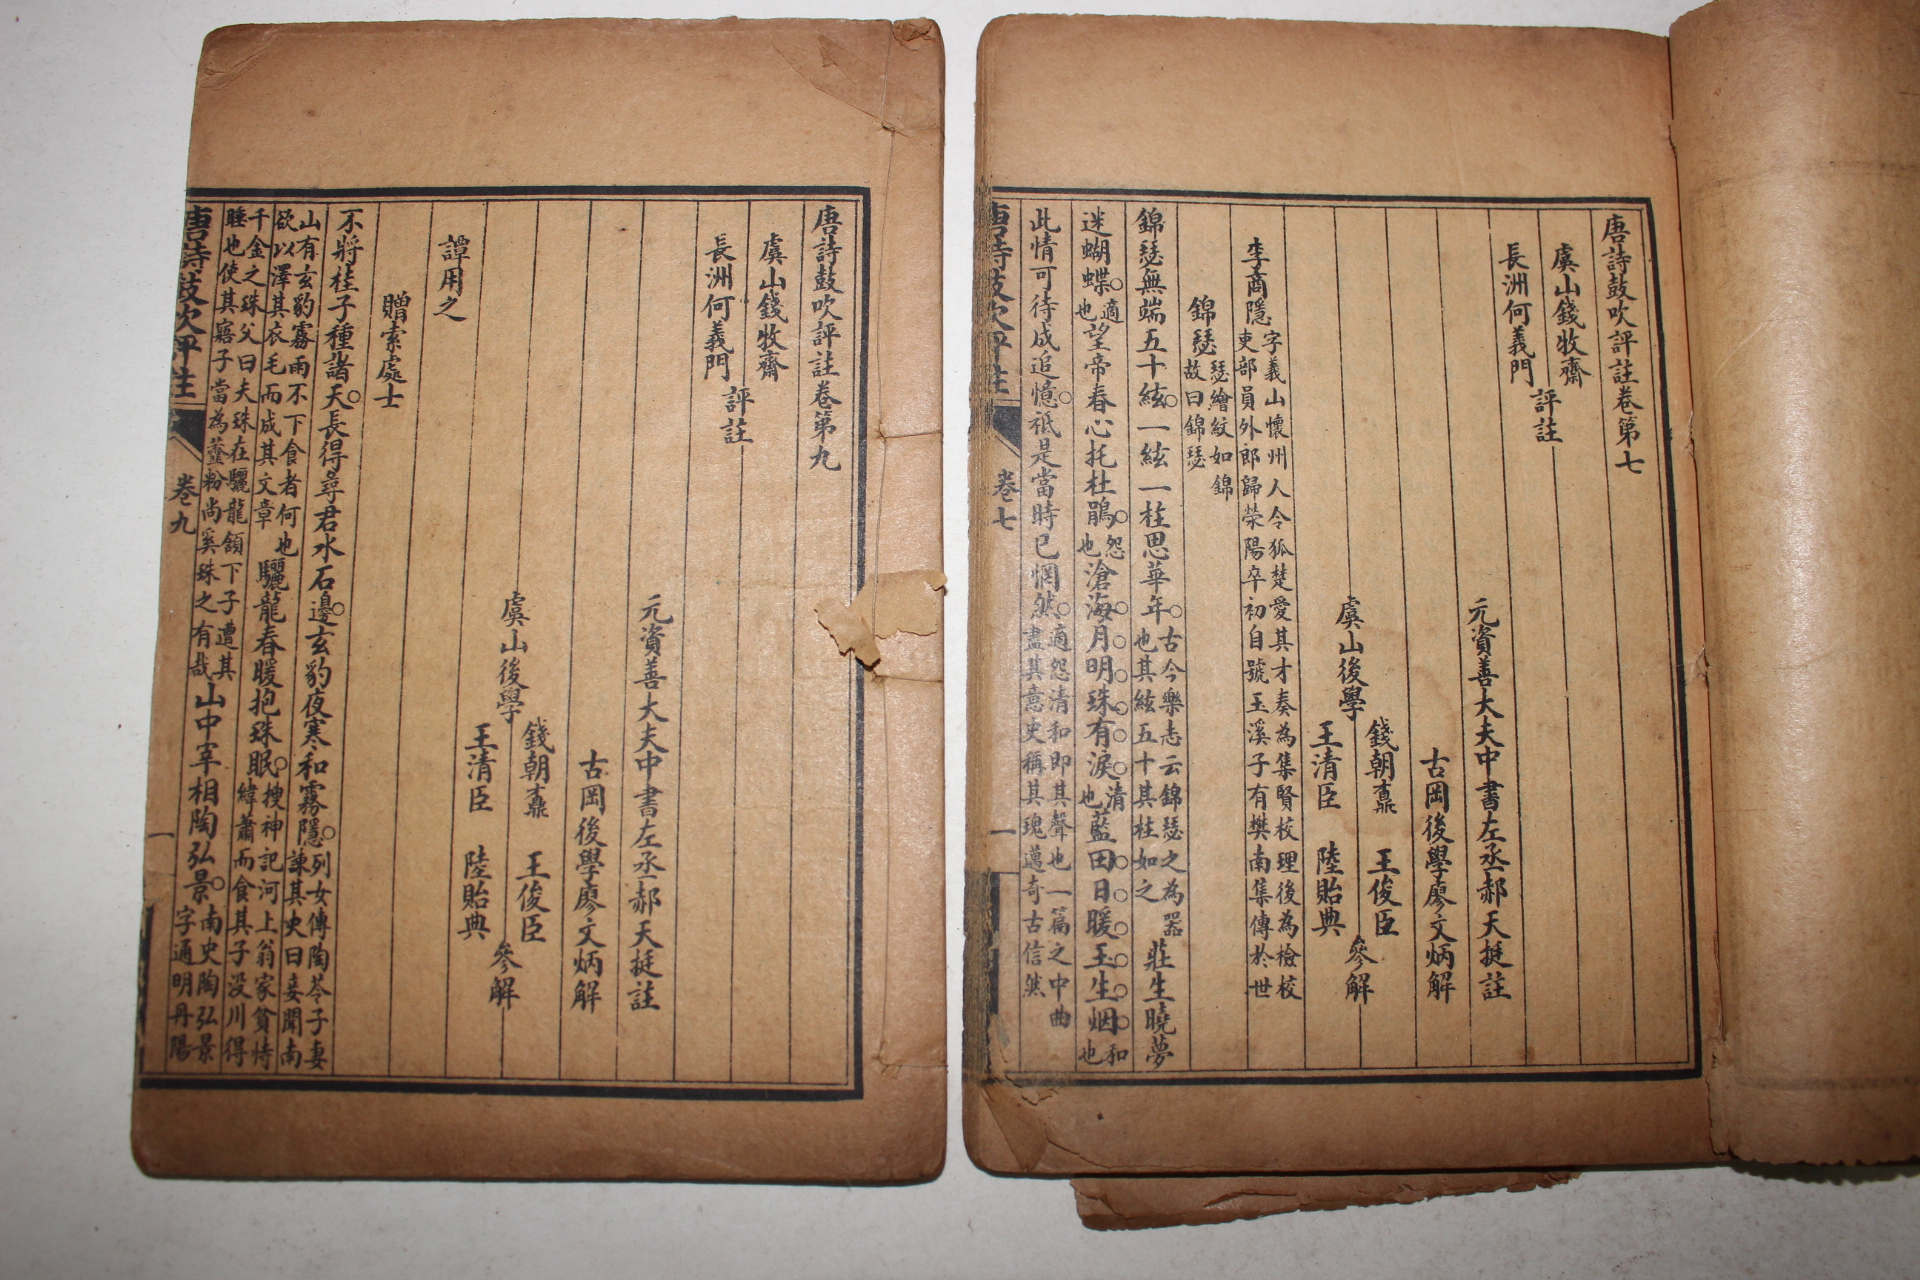 唐詩鼓吹評註卷第七
虞山錢牧齋
長洲何義門
評註
元資善大夫中書左丞郝天挺註
古岡後學廖文炳解
虞山後學
錢朝鼒 王俊臣
王清臣 陸貽典
參解
李商隱
字義山懷州人令狐楚愛其才奏為集賢校理後為檢校
吏部員外郎歸滎陽卒初自號玉溪子有樊南集傳於世
錦瑟
瑟繪紋如錦
故曰錦瑟
錦瑟無端五十絃一絃一柱思華年
古今樂志云錦瑟之為器
也其絃五十其柱如之
莊生曉夢
迷蝴蝶
適
也
望帝春心托杜鵑
怨
也
滄海月明珠有淚
清
也
藍田日暖玉生烟
和
也
此情可待成追憶祗是當時已惘然
適怨清和即其聲也一篇之中曲
盡其意史稱其瑰邁奇古信然
唐詩鼓吹評註
卷七
一
唐詩鼓吹評註卷第九
虞山錢牧齋
長洲何義門
評註
元資善大夫中書左丞郝天挺註
古岡後學廖文炳解
虞山後學
錢朝鼒 王俊臣
王清臣 陸貽典
參解
譚用之
贈索處士
不將桂子種諸天長得尋君水石邊玄豹夜寒和霧隱
列女傳陶荅子妻
諫其史曰妾聞南
山有玄豹霧雨不下食者何也
欲以澤其衣毛而成其文章
驪龍春暖抱珠眠
搜神記河上翁家貧恃
緯蕭而食其子没川得
千金之珠父曰夫珠在驪龍頷下子遭其
睡也使其寤子當為虀粉尚奚珠之有哉
山中宰相陶弘景
南史陶弘景
字通明丹陽
唐詩鼓吹評註
卷九
一